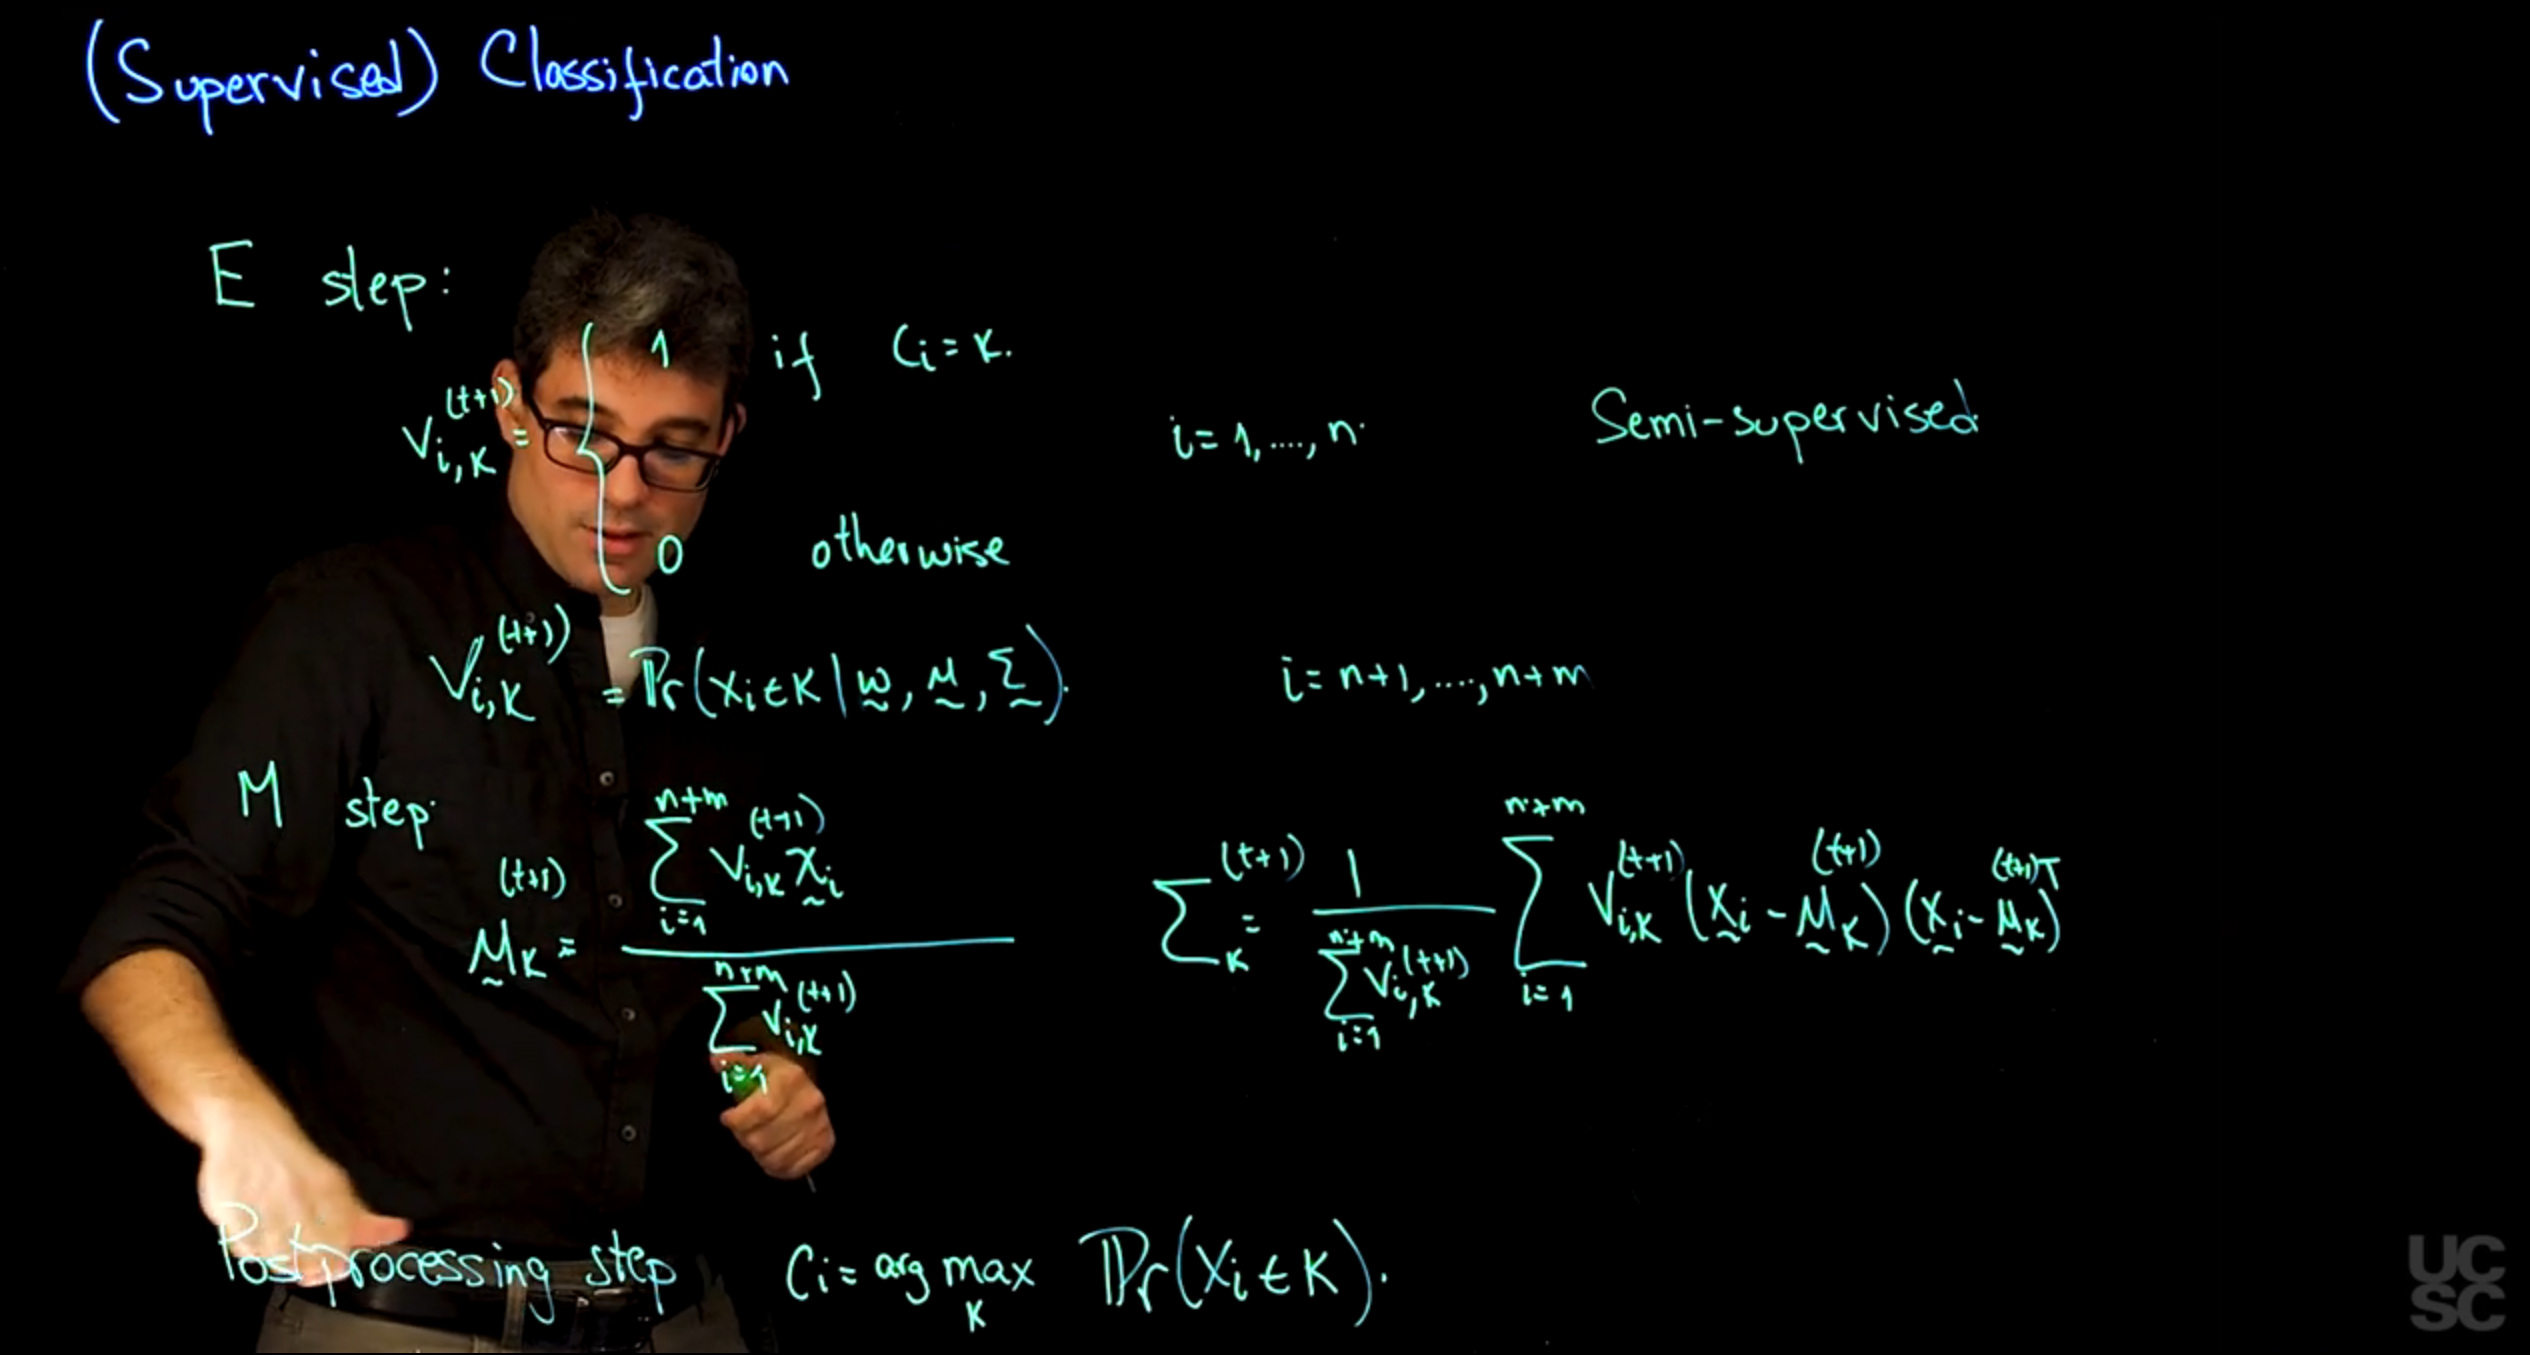 (Supervised) Classification
E step:
V_{i,K}^{(t+1)} = { 1 if C_i = K.
0 otherwise
i = 1, ...., n.
Semi-supervised
V_{i,K}^{(t+1)} = Pr(x_i ∈ K | w̰, μ̰, Σ̰). i = n+1, ...., n+m
M step:
μ̰_K^{(t+1)} = \frac{\sum_{i=1}^{n+m} V_{i,K}^{(t+1)} x̰_i}{\sum_{i=1}^{n+m} V_{i,K}^{(t+1)}}
Σ_K^{(t+1)} = \frac{1}{\sum_{i=1}^{n+m} V_{i,K}^{(t+1)}} \sum_{i=1}^{n+m} V_{i,K}^{(t+1)} (x̰_i - μ̰_K^{(t+1)}) (x̰_i - μ̰_K^{(t+1)})^T
Postprocessing step C_i = arg max_K Pr(x_i ∈ K).
UC
SC